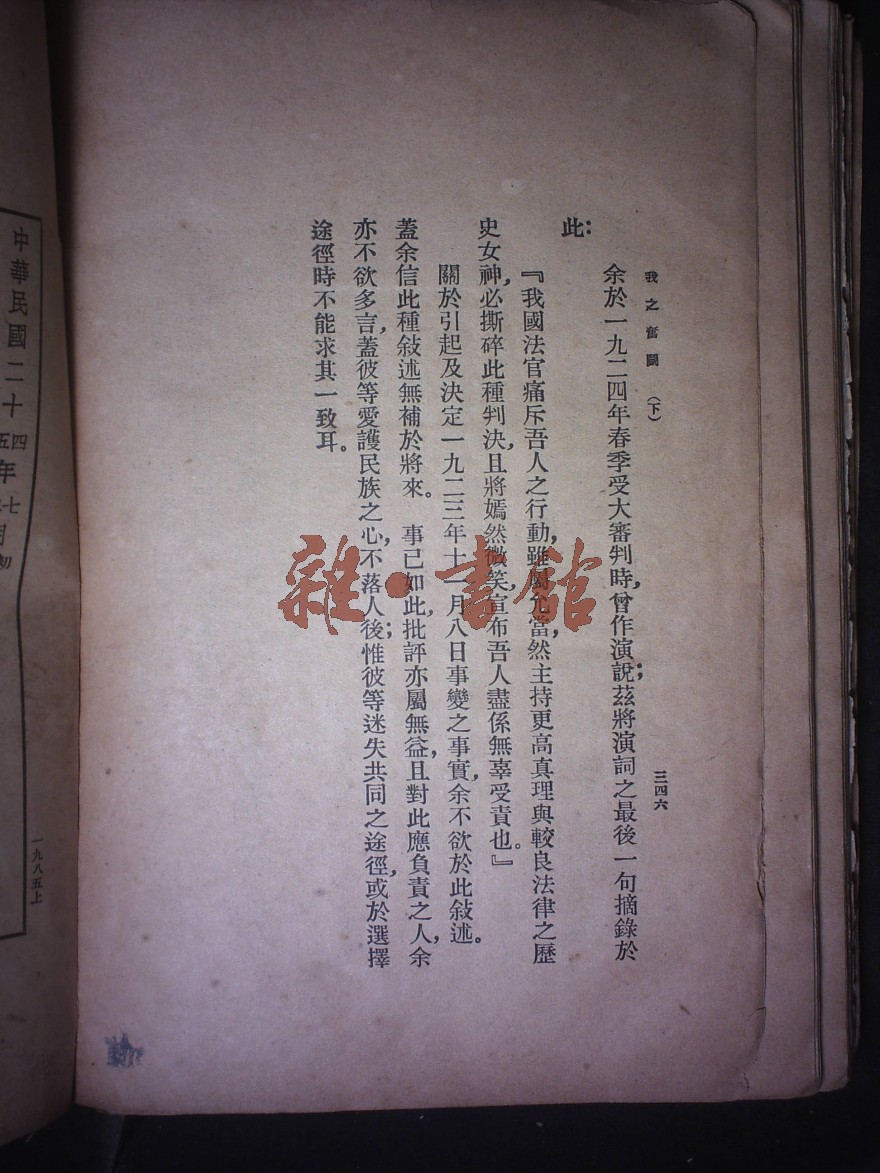 我之奮鬭（下）
三四六
余於一九二四年春季受大審判時，曾作演說；茲將演詞之最後一句摘錄於
此：
『我國法官痛斥吾人之行動，雖閣允當，然主持更高真理與較良法律之歷
史女神，必撕碎此種判決，且將嫣然微笑，宣布吾人盡係無辜受責也。』
關於引起及決定一九二三年十一月八日事變之事實，余不欲於此敍述。
蓋余信此種敍述無補於將來。　事已如此，批評亦屬無益，且對此應負責之人，余
亦不欲多言，蓋彼等愛護民族之心，不落人後；惟彼等迷失共同之途徑，或於選擇
途徑時不能求其一致耳。
雜·書館
中華民國二十
四
五
年
七
月
初
一九八五上